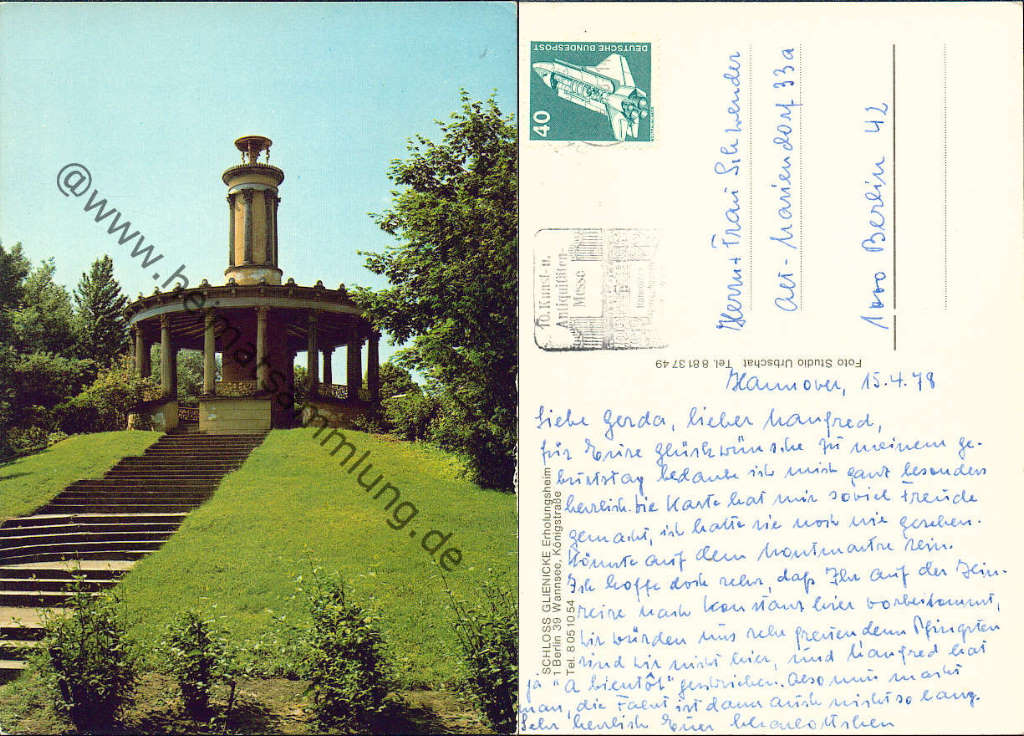 @www.heimatsammlung.de
DEUTSCHE BUNDESPOST
40
10. Kunst- u.
Antiquitäten-
Messe
Herrn + Frau Schwender
Alt-Mariendorf 33a
1000 Berlin 42
Foto Studio Urbschat Tel. 8 81 37 49
SCHLOSS GLIENICKE Erholungsheim
1 Berlin 39 Wannsee, Königstraße
Tel. 8 05 10 54
Hannover, 15.4.78
Liebe Gerda, lieber Manfred,
für Eure Glückwünsche zu meinem Ge-
burtstag bedanke ich mich ganz besonders
herzlich. Die Karte hat mir soviel Freude
gemacht, ich hatte sie noch nie gesehen.
Könnte auf dem Montmartre sein.
Ich hoffe doch sehr, daß Ihr auf der
reise nach Konstanz hier vorbeikommt,
wir würden uns sehr freuen denn Pfingsten
sind wir nicht hier, und Manfred hat
ja "A bientôt" geschrieben. Also nun macht
man, die Fahrt ist dann auch nicht so lang.
Sehr herzlich Euer